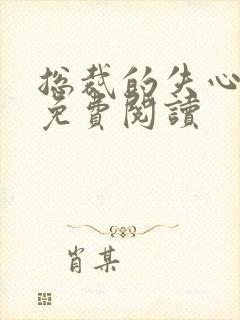 总裁的失心
免費閱讀
肖某